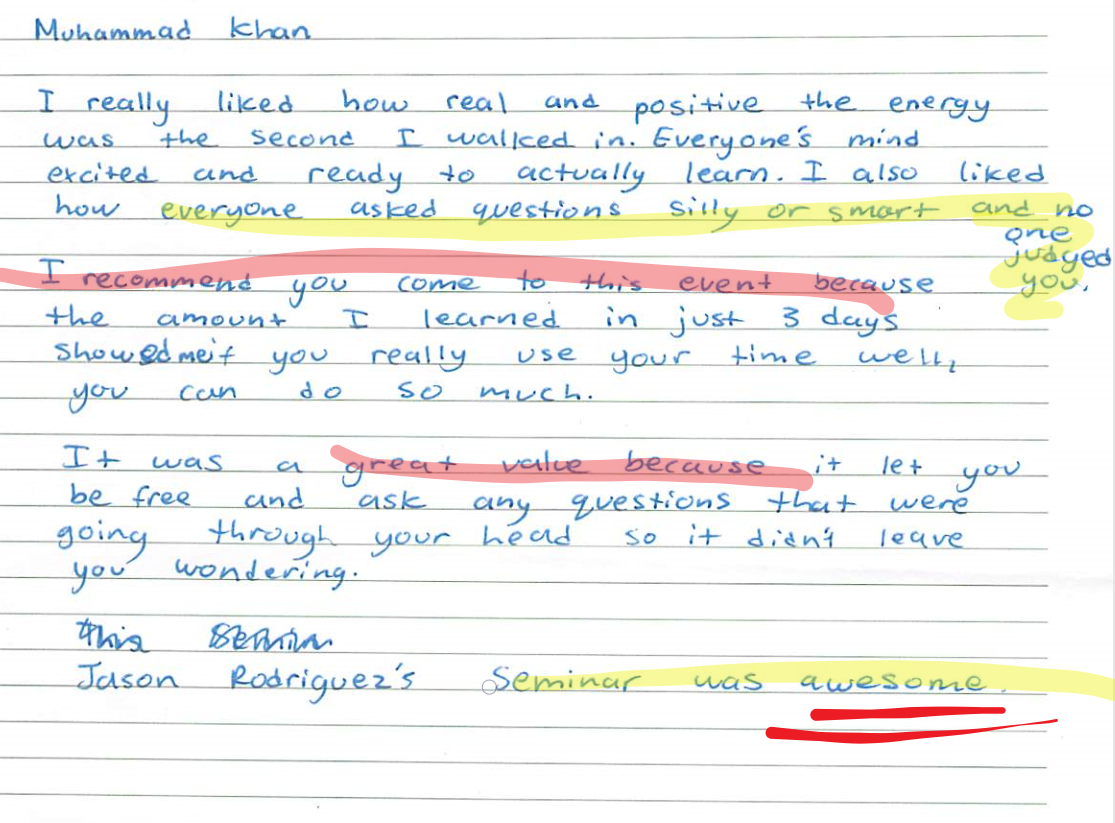 Muhammad Khan
I really liked how real and positive the energy
was the second I walked in. Everyone's mind
excited and ready to actually learn. I also liked
how everyone asked questions silly or smart and no
one
judged
you.
I recommend you come to this event because
the amount I learned in just 3 days
showed me if you really use your time well,
you can do so much.
It was a great value because it let you
be free and ask any questions that were
going through your head so it didn't leave
you wondering.
this
Jason Rodriguez's Seminar was awesome.